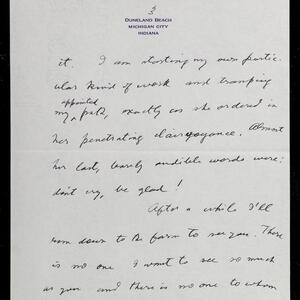 3
DUNELAND BEACH
MICHIGAN CITY
INDIANA
it. I am starting my own partic-
ular kind of work and tramping
appointed
my path, exactly as she ordered in
her penetrating clairvoyance. Almost
her last, barely audible words were:
don't cry, be glad!
After a while I'll
come down to the farm to see you. There
is no one I want to see so much
as you and there is no one to whom